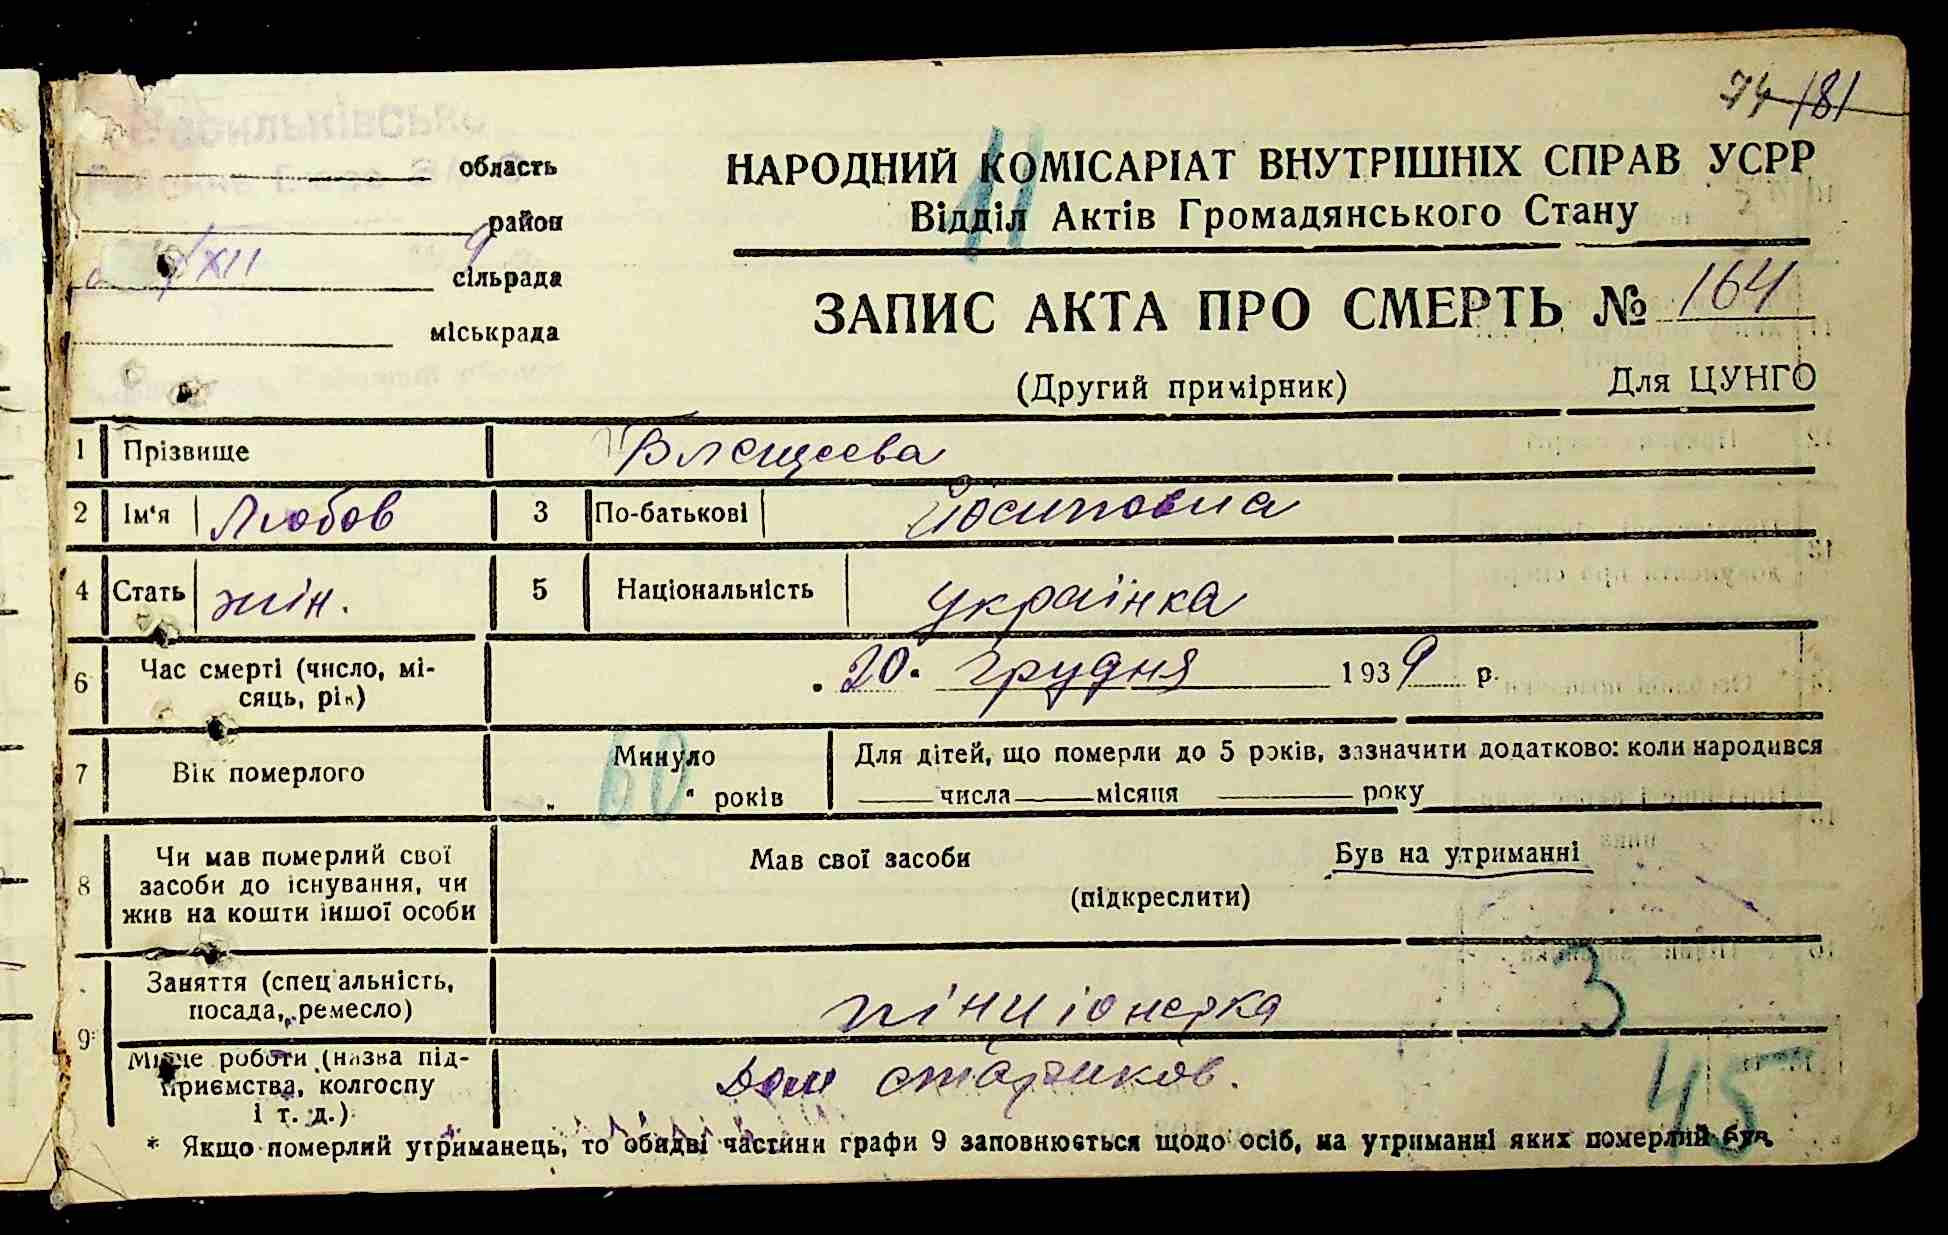 74 181
область
район
сільрада
міськрада
XII
9
НАРОДНИЙ КОМІСАРІАТ ВНУТРІШНІХ СПРАВ УСРР
Відділ Актів Громадянського Стану
11
ЗАПИС АКТА ПРО СМЕРТЬ № 164
(Другий примірник) Для ЦУНГО
1 Прізвище
2 Ім'я Любов 3 По-батькові Йосиповна
4 Стать жін. 5 Національність українка
6 Час смерті (число, мі-
сяць, рік)
20 грудня 1939 р.
7 Вік померлого
Минуло
60 років
Для дітей, що померли до 5 років, зазначити додатково: коли народився
числа місяця року
8 Чи мав померлий свої
засоби до існування, чи
жив на кошти іншої особи
Мав свої засоби Був на утриманні
(підкреслити)
9 Заняття (спеціальність,
посада, ремесло)
пінціонерка
3
Місце роботи (назва під-
приємства, колгоспу
і т. д.)
Дом старчиков.
45
* Якщо померлий утриманець, то обидві частини графи 9 заповнюється щодо осіб, на утриманні яких померлий був.